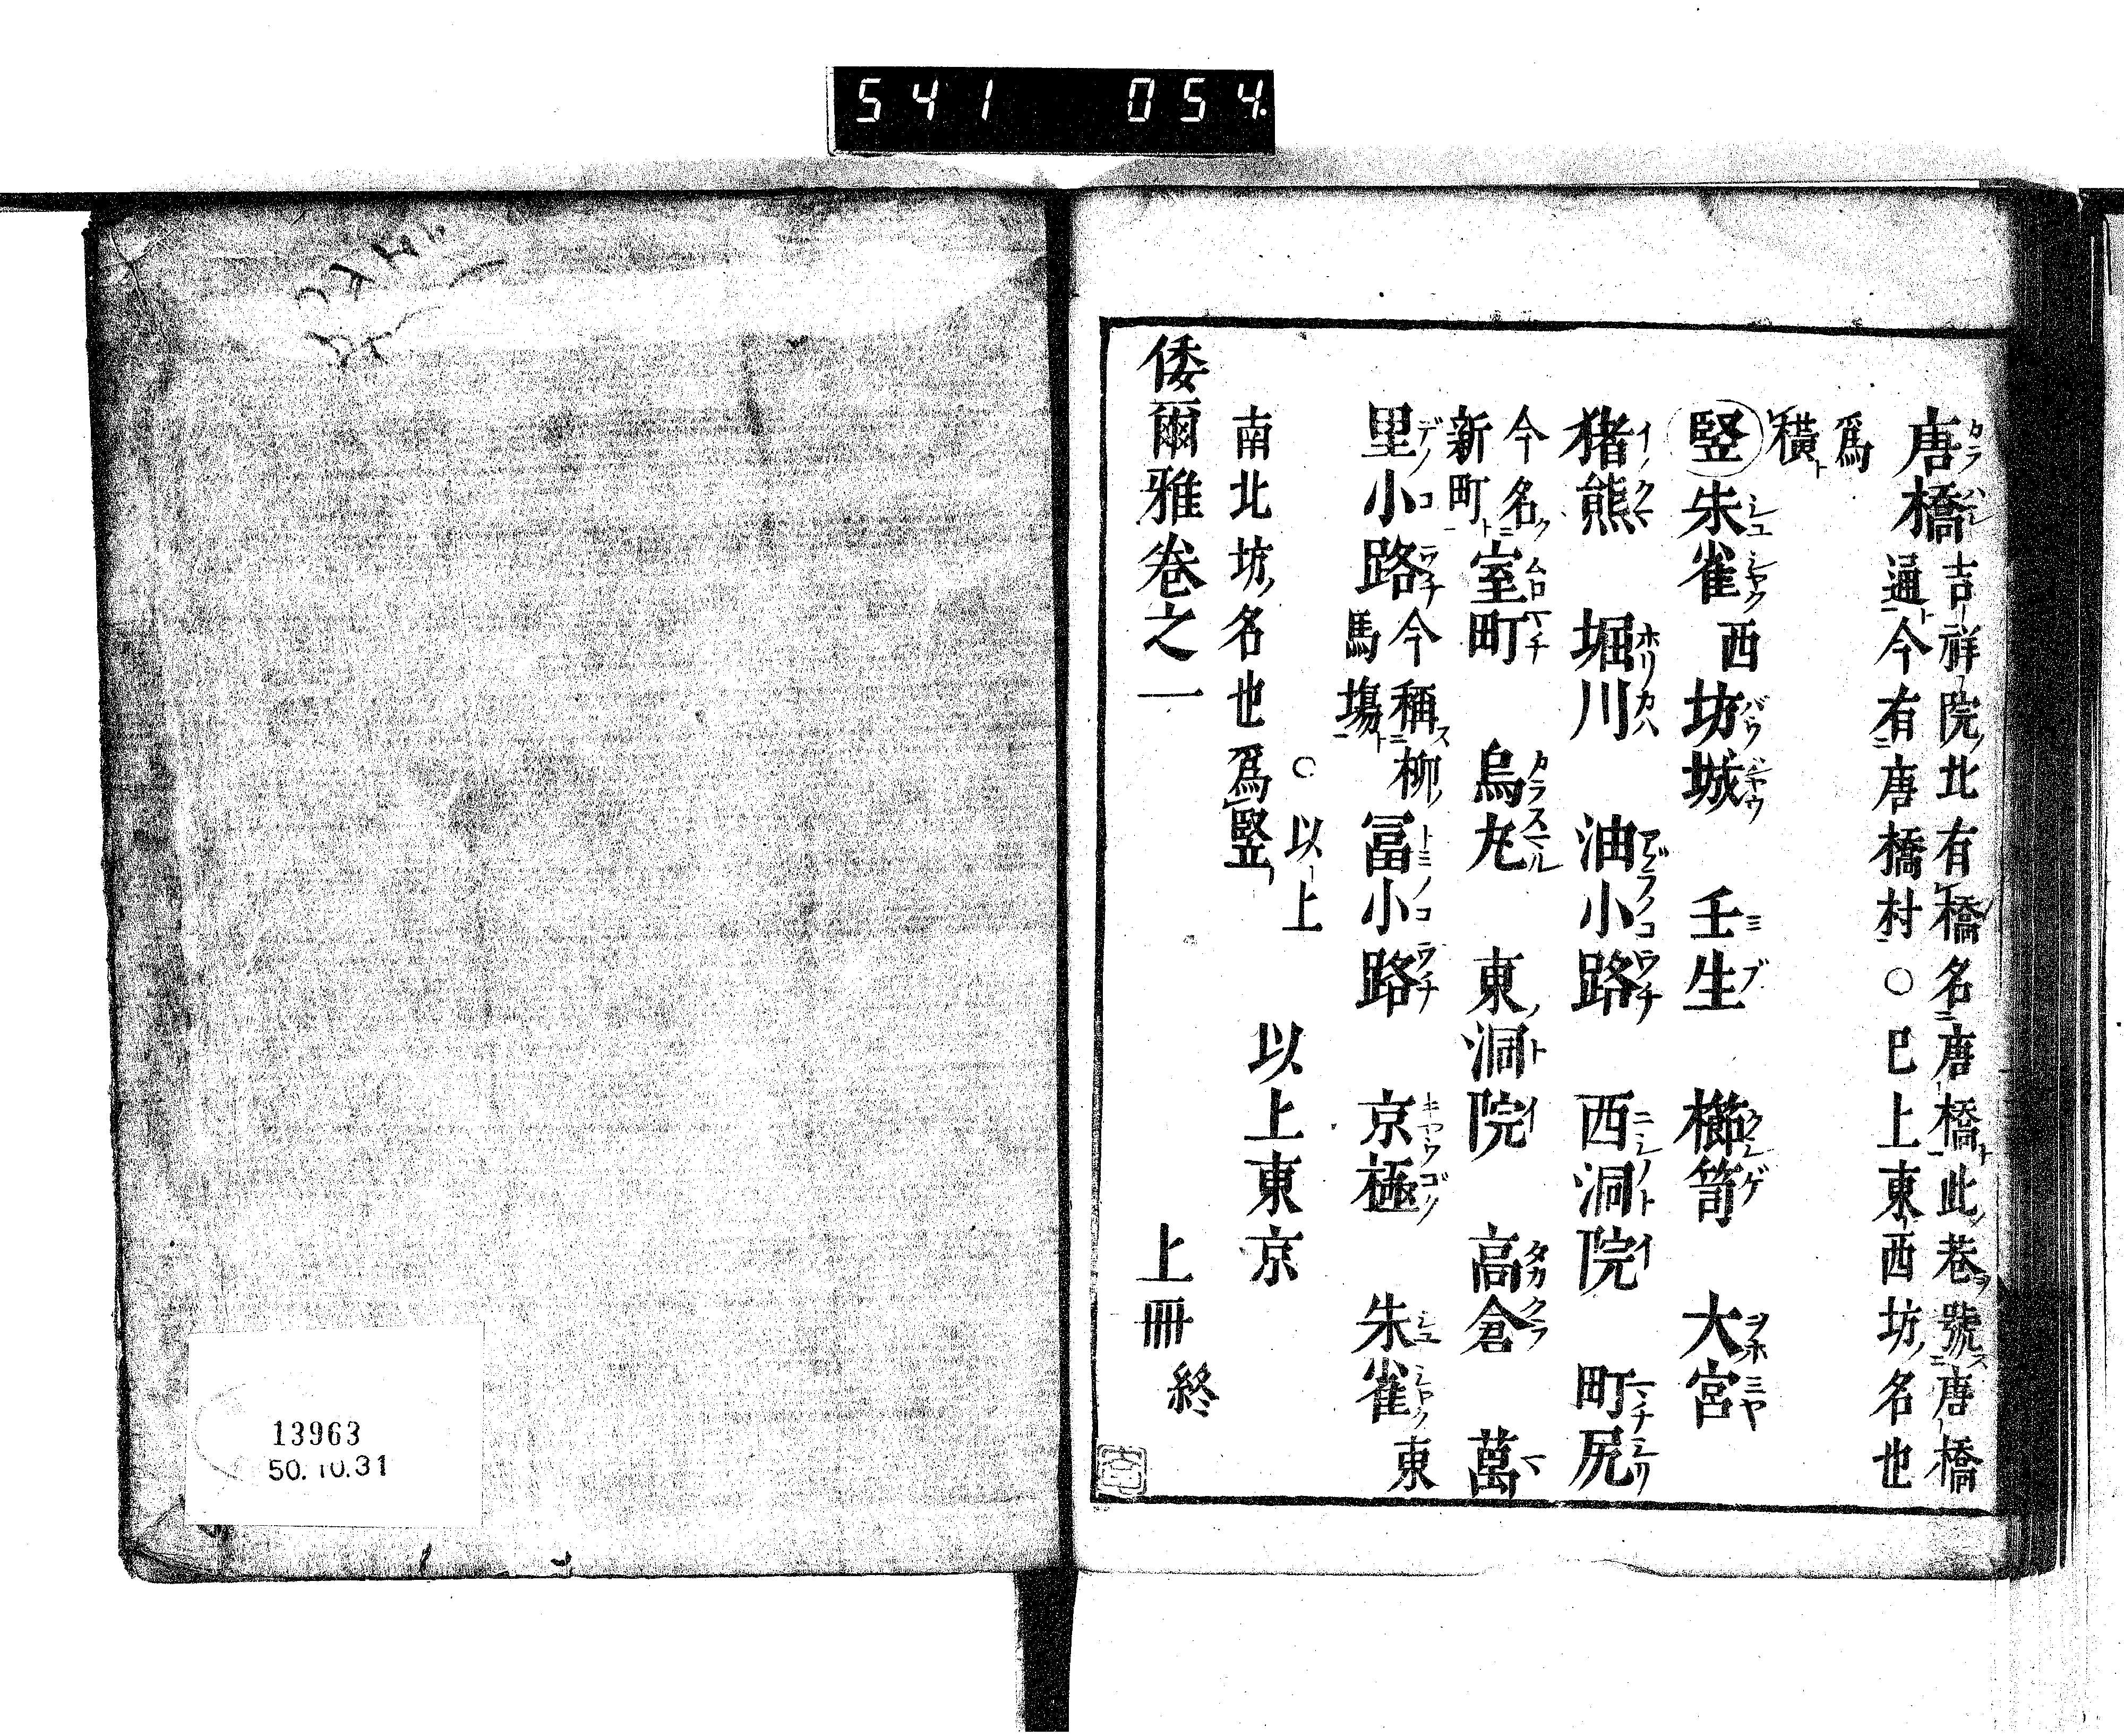 541 054.
唐橋 吉祥院北有橋名唐橋此巷號唐橋
通今有唐橋村○巳上東西坊名也
爲
橫
竪 朱雀 西坊城 壬生 櫛笥 大宮
猪熊 堀川 油小路 西洞院 町尻
今名
新町 室町 烏丸 東洞院 高倉 萬
里小路 今稱柳
馬塲 冨小路 京極 朱雀 東
○以上
南北坊名也爲竪 以上東京
倭爾雅卷之一 上冊終
13963
50.10.31